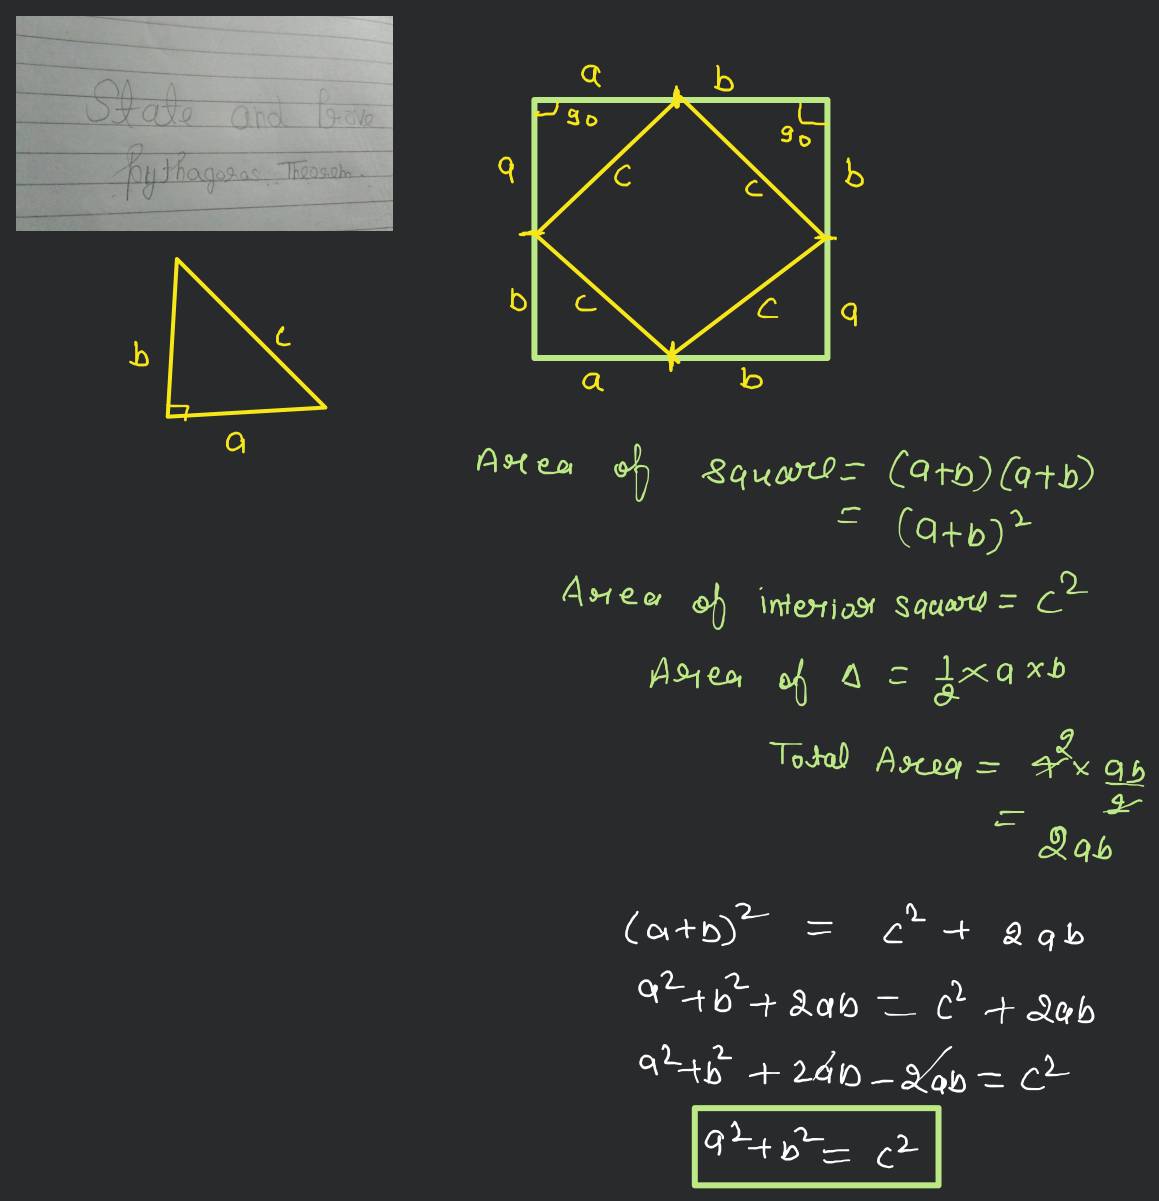 State and Prove
Pythagoras Theorem.
b
c
a
a
b
90
90
a
c
c
b
b
c
c
a
a
b
Area of square = (a+b)(a+b)
= (a+b)²
Area of interior square = c²
Area of Δ = 1/2 × a × b
Total Area = 4² × ab/2
= 2ab
(a+b)² = c² + 2ab
a²+b²+2ab = c² + 2ab
a²+b² + 2ab - 2ab = c²
a²+b² = c²